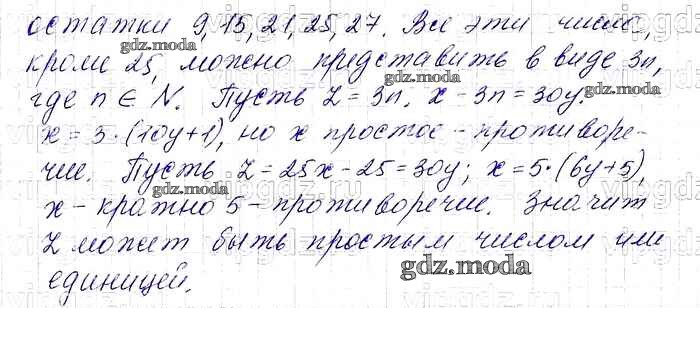 остатки 9, 15, 21, 25, 27. Все эти числа,
кроме 25, можно представить в виде 3n,
где n ∈ N. Пусть Z = 3n. x - 3n = 30y.
x = 3·(10y+1), но x простое - противоре-
чие. Пусть Z = 25 x - 25 = 30y; x = 5·(6y+5),
x - кратно 5 - противоречие. Значит
Z может быть простым числом или
единицей.
gdz.moda
gdz.moda
gdz.moda
gdz.moda